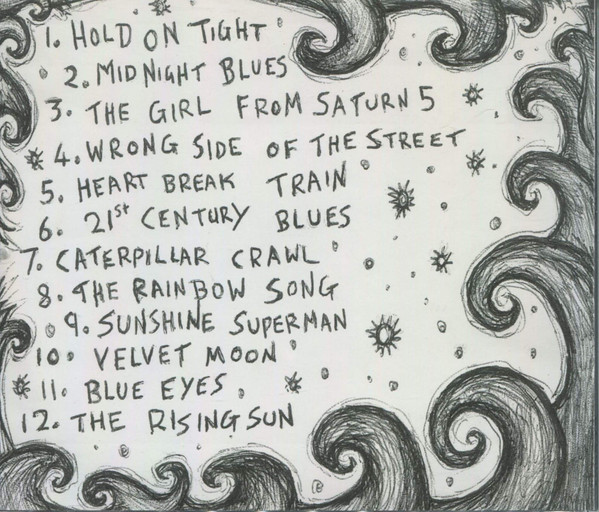 1. HOLD ON TIGHT
2. MIDNIGHT BLUES
3. THE GIRL FROM SATURN 5
4. WRONG SIDE OF THE STREET
5. HEART BREAK TRAIN
6. 21st CENTURY BLUES
7. CATERPILLAR CRAWL
8. THE RAINBOW SONG
9. SUNSHINE SUPERMAN
10. VELVET MOON
11. BLUE EYES.
12. THE RISING SUN